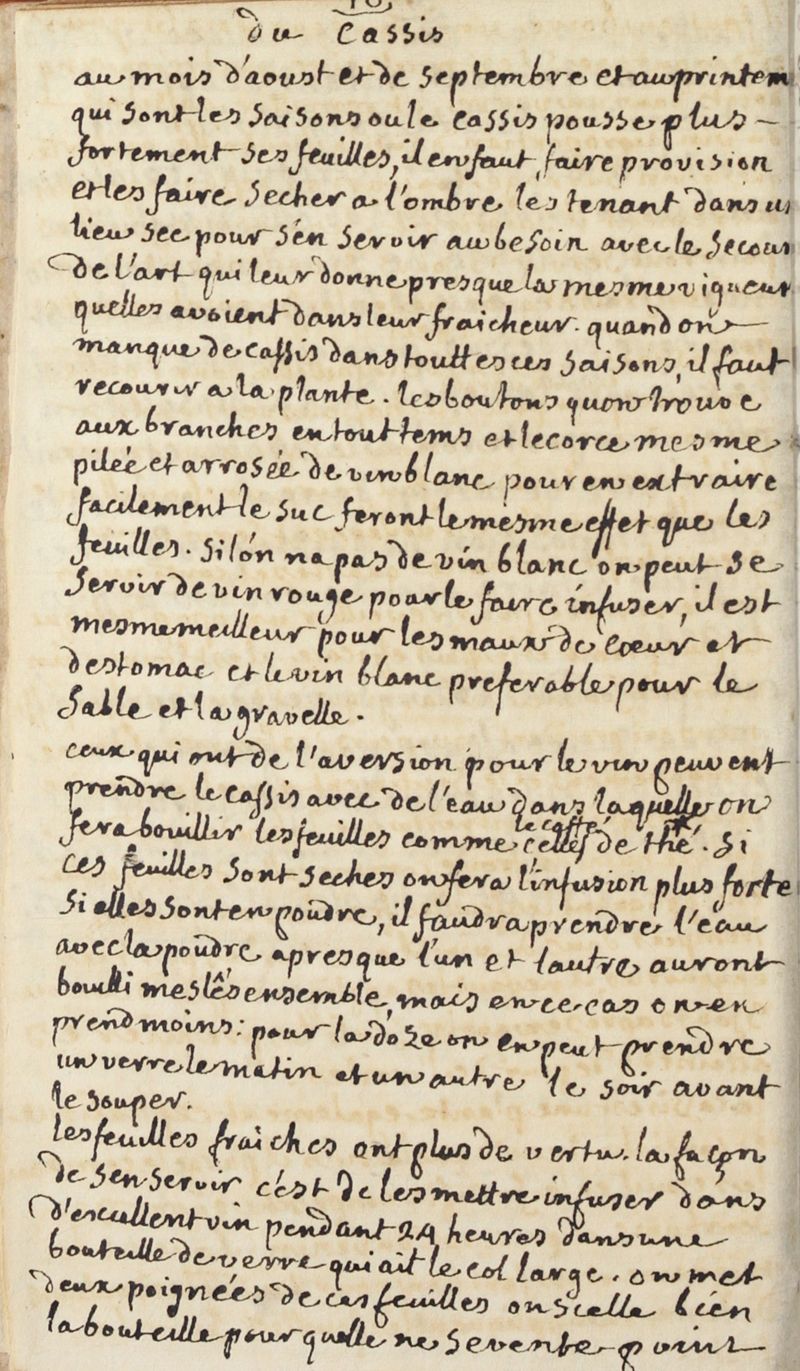 10
du Cassis
au mois d'aoust et de septembre et au printem
qui sont les saisons ou le cassis pousse plus –
fortement ses feuilles, il en faut faire provision
et les faire secher a l'ombre les tenant dans u
lieu sec pour s'en servoir au besoin avec le secour
de l'art qui leur donne presque la mesme vigueur
quelles avoient dans leur fraicheur. quand on
manque de cassis dans touttes ces saisons, il faut
recourir a la plante. les boutons quon trouve
aux branches en tout tems et lecorce mesme
pilée et arrosée de vin blanc pour en extraire
facilement le suc feront le mesme effet que les
feuilles. si lón na pas de vin blanc on peut se
servoir de vin rouge pour le faire infuser, il est
mesme meilleur pour les maux de cœur et
destomac et le vin blanc preferable pour le
sable et la gravelle.
ceux qui ont de l'aversion pour le vin peuvent
prendre le cassis avec de l'eau dans laquelle on
fera bouillir les feuilles comme le caffé celles de thé. si
ces feuilles sont seches on fera l'infusion plus forte
si elles sont en poudre, il faudra prendre l'eau
avec la poudre apres que l'un et lautre auront
boulli meslés ensemble, mais en ce cas on en
prend moins: pour la doze on en peut prendre
un verre le matin et un autre le soir avant
le souper.
les feuilles fraiches ont plus de vertu. la façon
de sen servoir c'est de les mettre infuser dans
d'excellent vin pendant 24 heures dans une
bouteille de verre qui ait le col large. on met
deux poignées de ces feuilles on scelle bien
la bouteille pour quelle ne sevente point